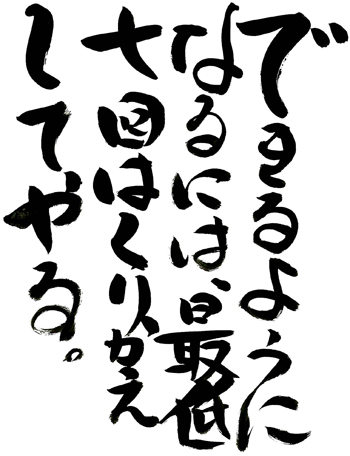 できるように
なるには、最低
十回はくりかえ
してやる。